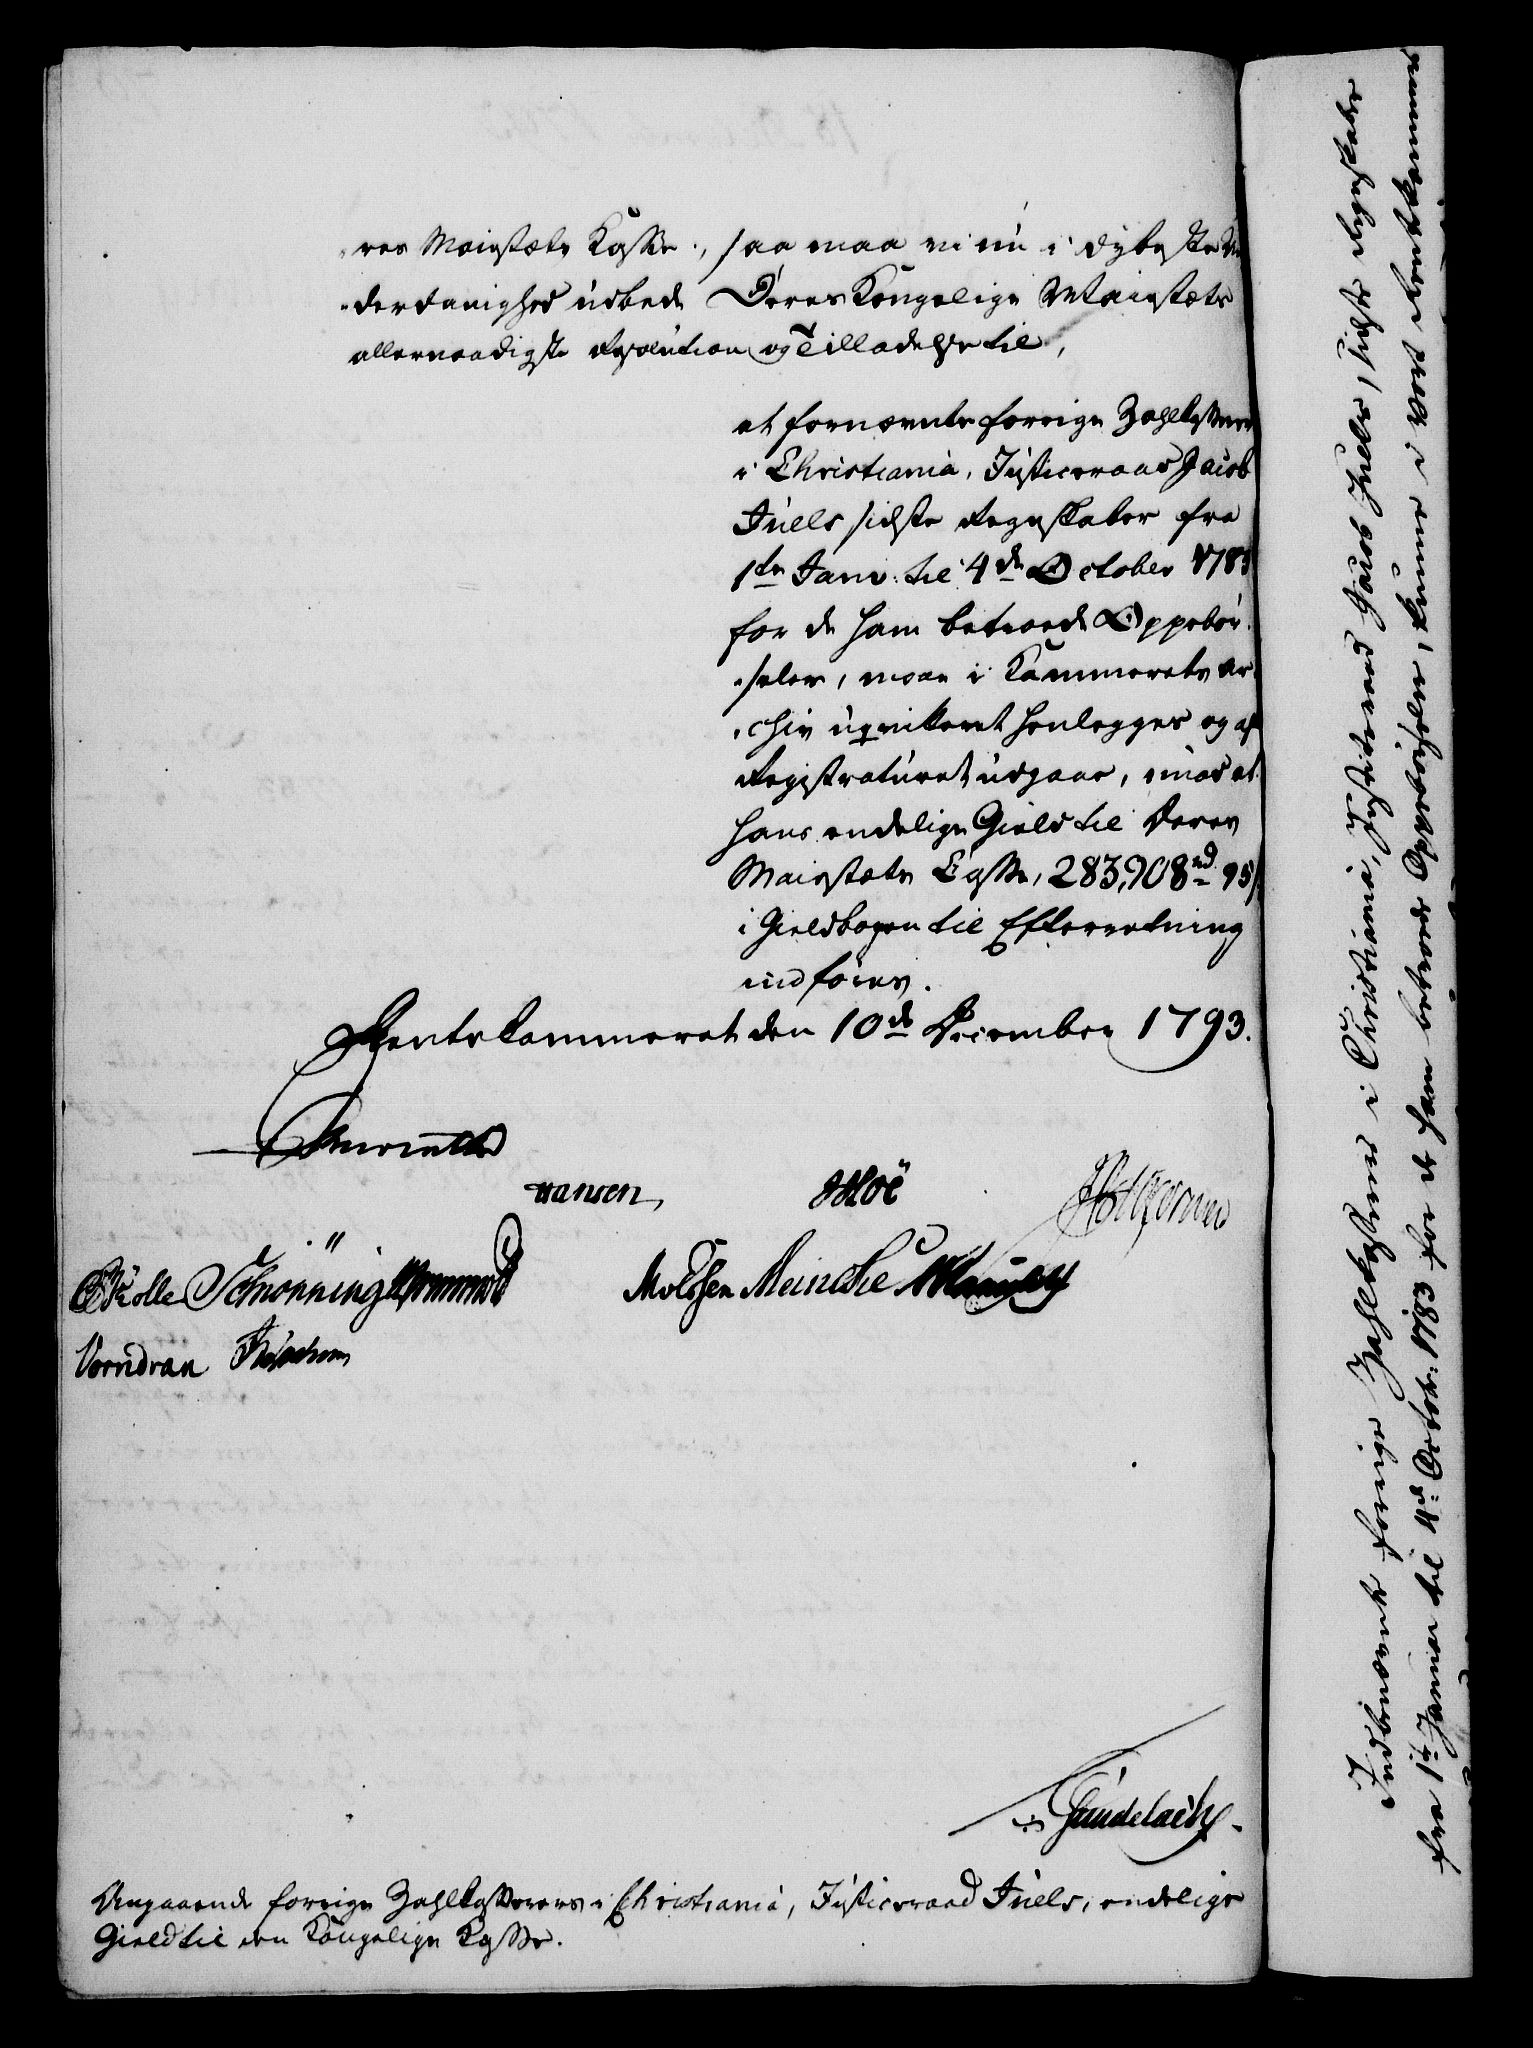 res Maiestæts Kasse, saa maa vi nu i dybeste Un
derdanighed udbede Deres Kongelige Maiestæts
allernaadigste Resolution og Tilladelse til,
at fornævnte forrige Zahlkasserer
i Christiania, Justiceraad Jacob
Juels sidste Regnskaber fra
1te Janv. til 4de October 1783
for de ham betroede Oppebør
seler, maae i Kammerets Ar
chiv uqvitteret henlegges og af
Registraturet udgaae, imod at
hans endelige Gield til Deres
Maiestæts Casse, 283,908 rd 95 s
i Gieldbogen til Efterretning
indføres.
Rentekammeret den 10de December 1793.
Hansen
Hoë
Schiönning
Molssen Meincke
Vorndran
Gundelach
Angaaende forrige Zahlkasserers i Christiania, Justiceraad Juels, endelige
Gield til den Kongelige Kasse.
Indbenævnte forrige Zahlkasserer i Christiania, Justiceraad Jacob Juels, sidste Regnskaber
fra 1te Januar til 4de Octobr: 1783 for de ham betroede Oppebørseler, kunne i Vort Rentekammer